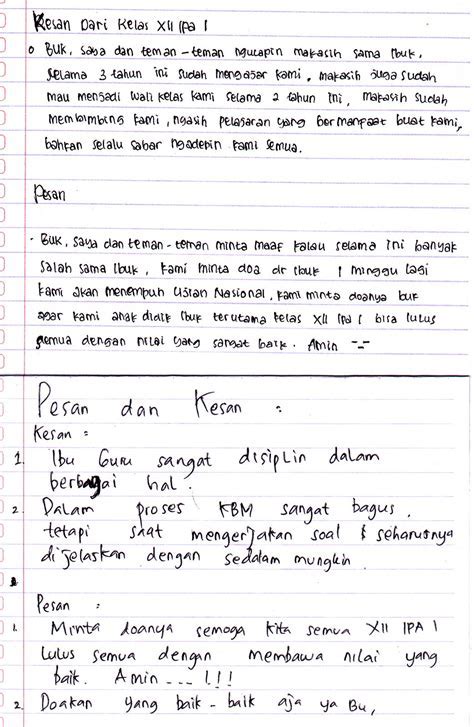 Kesan Dari Kelas XII Ipa 1
o Buk, saya dan teman-teman ngucapin makasih sama Ibuk,
selama 3 tahun ini sudah mengajar kami, makasih juga sudah
mau menjadi wali kelas kami selama 2 tahun ini, makasih sudah
membimbing kami, ngasih pelajaran yang bermanfaat buat kami,
bahkan selalu sabar ngadepin kami semua.
Pesan
- Buk, saya dan teman-teman minta maaf kalau selama ini banyak
salah sama Ibuk, kami minta doa dr Ibuk 1 minggu lagi
kami akan menempuh Ujian Nasional, kami minta doanya buk
agar kami anak didik Ibuk terutama kelas XII Ipa 1 bisa lulus
semua dengan nilai yang sangat baik. Amin -_-
Pesan dan Kesan :
Kesan :
1. Ibu Guru sangat disiplin dalam
berbagai hal.
2. Dalam proses KBM sangat bagus,
tetapi saat mengerjakan soal seharusnya
dijelaskan dengan sedalam mungkin.
Pesan :
1. Minta doanya semoga kita semua XII IPA 1
lulus semua dengan membawa nilai yang
baik. Amin --- !!!
2. Doakan yang baik-baik aja ya Bu,